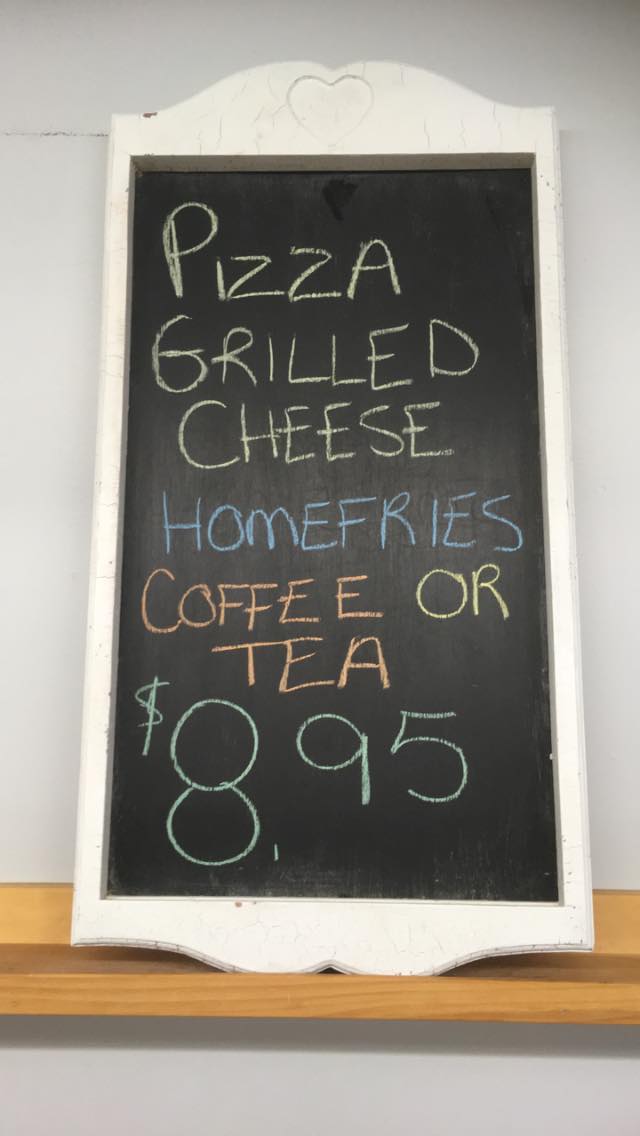 PIZZA
GRILLED
CHEESE
HOMEFRIES
COFFEE OR
TEA
$8.95